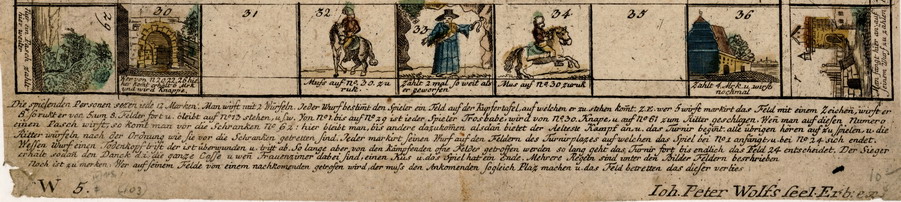 29
30
31
32
33
34
35
36
und wird Knappe.
Muss auf No. 30. zu
ruk.
Zählt 2 mal so weit als
er geworfen.
Mus auf No 30 zuruk
Zahlt 4 Mrk u. würft
nochmal
Man fangt hier an auf
Die spielenden Personen sezen iede 12 Marken. Man würft mit 2 Würfeln. Jeder Wurf bestimt den Spieler ein Feld auf der Kupfertafel, auf welchen er zu stehen komt. Z.E. wer 5 würft markirt das Feld mit einem Zeichen, würft er
8 so rukt er vor. Sum 8. Felder fort u. bleibt auf No 13 stehen, u.s.w. Von No 1. bis auf No 29 ist ieder Spieler Trosbube, wird von No 30. Knape, u auf No 61 zum Ritter geschlagen. Wen man auf diesen Numero 1.
einen Pasch würft, so komt man vor die Schranken No 62. hier bleibt man, bis andere dazukomen alsdan bietet der Aelteste Kampff an, u. das Turnir begint. alle übrigen hören auf zu spielen, u. die
Ritter würfeln nach der Ordnung wie sie vor die Schranken getretten sind. Jeder markirt seinen Wurf auf den Feldern des Turnierplazes auf welchen das Spiel bei No 1 anfängt, u. bei No 24 sich endet.
Wessen Wurf einen Todenkopf trift der ist überwunden, u. tritt ab. So lange aber, von den kämpfenden ofne Felder getroffen werden so lang geht das Turnir fort bis endlich das Feld 24 entscheidet. Der Sieger
erhält sodan den Dank d.i. die ganze Cassa u. wen Frauenzimer dabei sind, einen Kus, u. das Spiel hat ein Ende. Mehrere Regeln sind unter den Bilder Feldern beschrieben
Noch ist zu merken. Wer auf seinem Felde von einem nachkomenden getrofen wird, der muss den Ankomenden sogleich Plaz machen u. das Feld betretten das dieser verlies
W. 5.
Ioh. Peter Wolfs seel. Erb. exc.